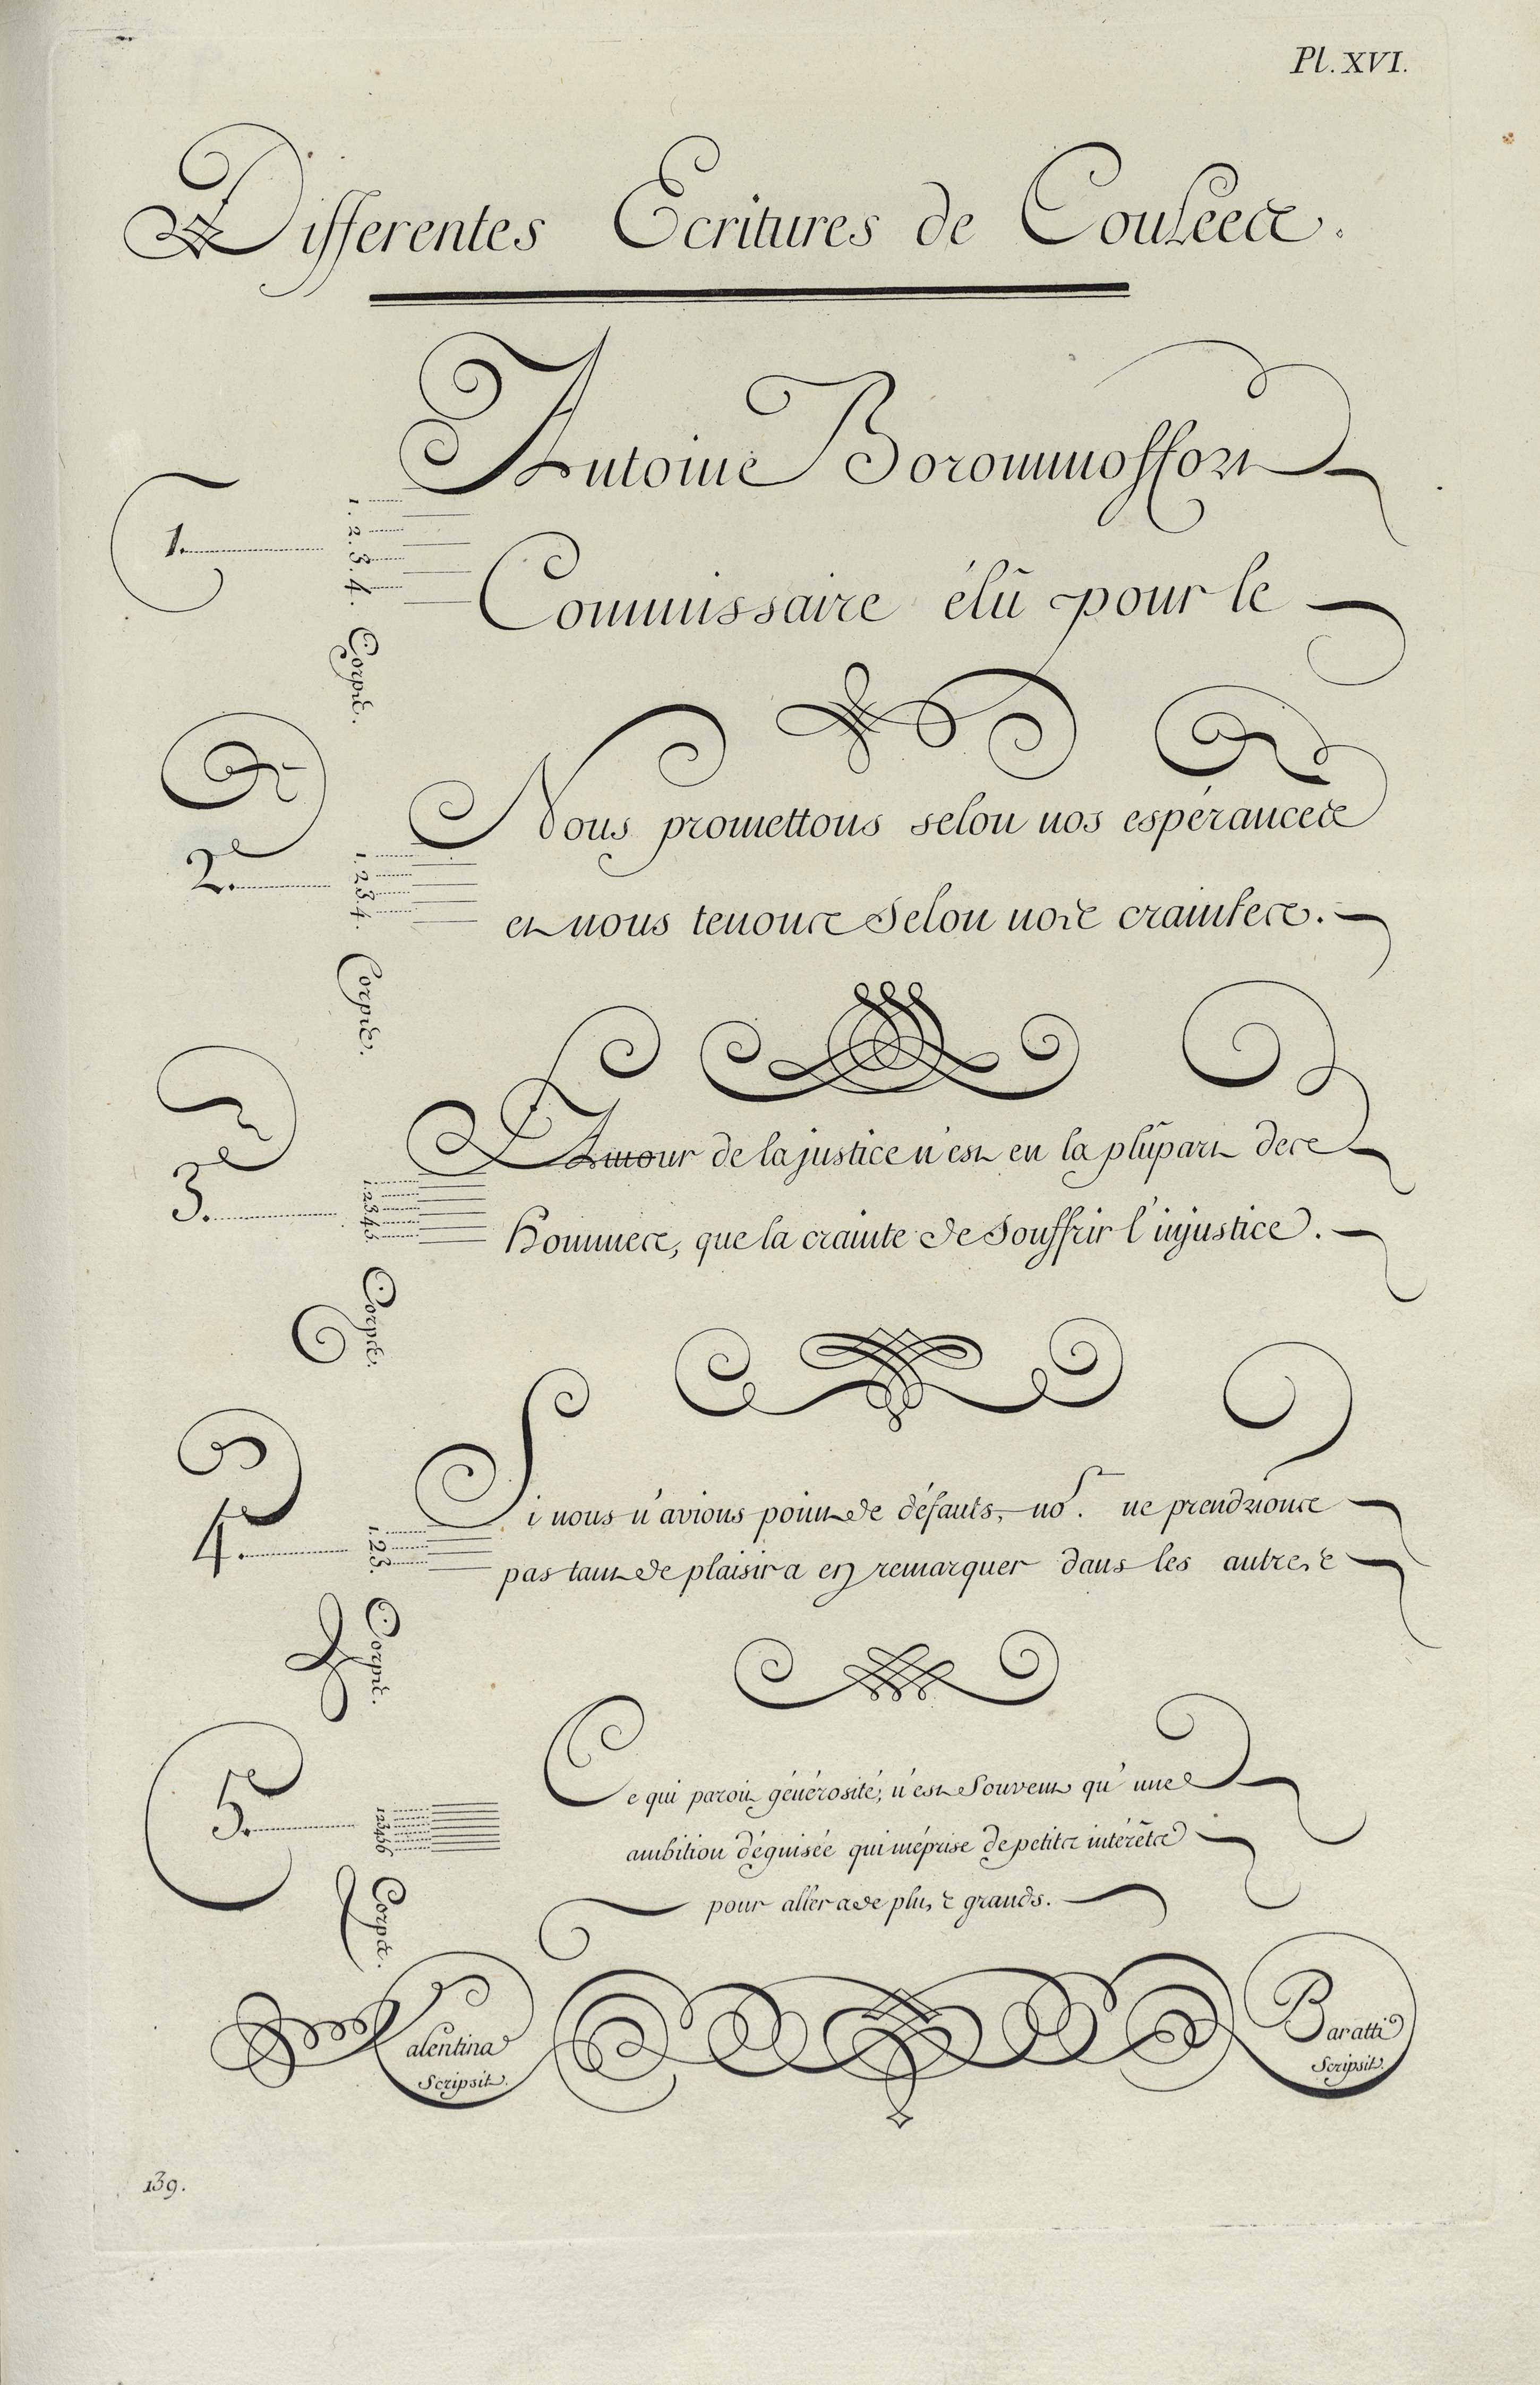 Pl. XVI.
Differentes Ecritures de Couleés.
Antoine Borommosson
1.
1. 2. 3. 4. Corps.
Commissaire élû pour le
Nous promettons selon nos espérances
2.
1. 2. 3. 4. Corps.
et nous tenons selon nos craintes.
L'Amour de la justice n'est en la plûpart des
3.
1. 2. 3. 4. 5. Corps.
Hommes, que la crainte de souffrir l'injustice.
Si nous n'avions point de défauts, no.s ne prendrions
4.
1. 2. 3. Corps.
pas tant de plaisir a en remarquer dans les autres
Ce qui paroit générosité; n'est souvent qu'une
5.
1 2 3 4 5 6 Corps.
ambition déguisée qui méprise de petits intérêts
pour aller a de plus grands.
Valentina Baratti
Scripsit. Scripsit.
139.